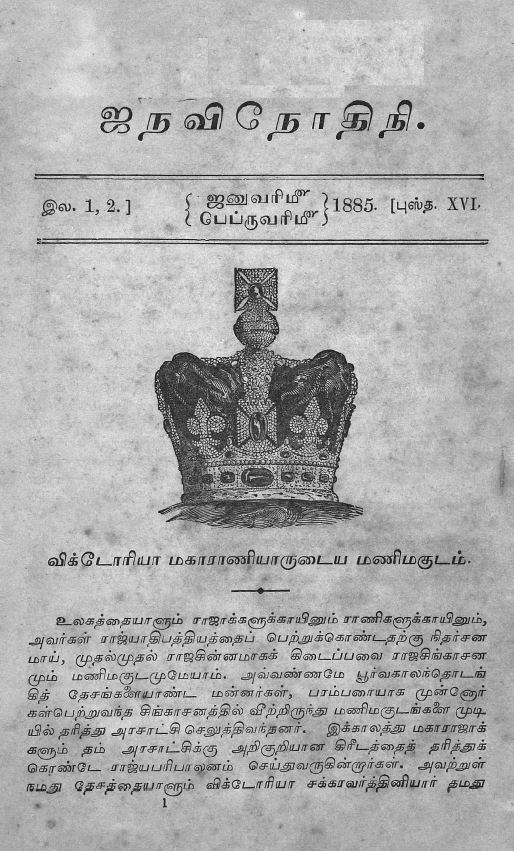 ஜநவிநோதிநி.
இல. 1, 2.] { ஜனுவரிமீ பேப்ருவரிமீ } 1885. [புஸ்த. XVI.
விக்டோரியா மகாராணியாருடைய மணிமகுடம்.
உலகத்தையாளும் ராஜாக்களுக்காயினும் ராணிகளுக்காயினும்,
அவர்கள் ராஜ்யாதிபத்தியத்தைப் பெற்றுக்கொண்டதற்கு நிதர்சன
மாய், முதல்முதல் ராஜசின்னமாகக் கிடைப்பவை ராஜசிங்காசன
மும் மணிமகுடமுமேயாம். அவ்வண்ணமே பூர்வகாலந்தொடங்
கித் தேசங்களையாண்ட மன்னர்கள், பரம்பரையாக முன்னோர்
கள்பெற்றுவந்த சிங்காசனத்தில் வீற்றிருந்து மணிமகுடங்களை முடி
யில் தரித்து அரசாட்சி செலுத்திவந்தனர். இக்காலத்து மகாராஜாக்
களும் தம் அரசாட்சிக்கு அறிகுறியான கிரீடத்தைத் தரித்துக்
கொண்டே ராஜ்யபரிபாலனம் செய்துவருகின்றார்கள். அவற்றுள்
நமது தேசத்தையாளும் விக்டோரியா சக்கரவர்த்தினியார் தமது
1